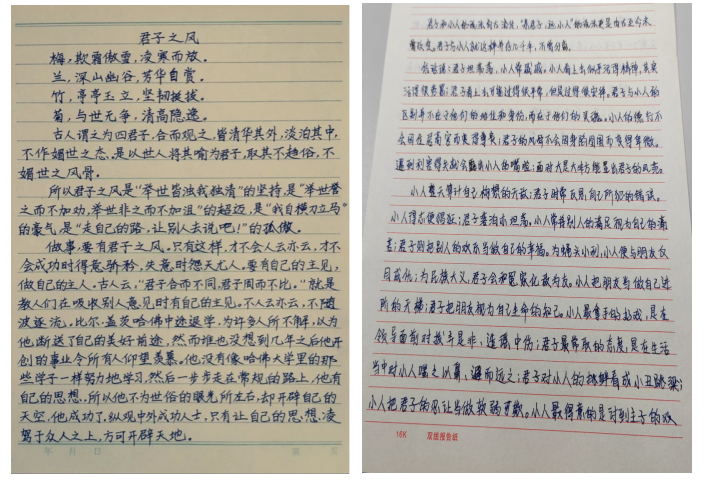 君子之风
梅，欺霜傲雪，凌寒而放。
兰，深山幽谷，芳华自赏。
竹，亭亭玉立，坚韧挺拔。
菊，与世无争，清高隐逸。
古人谓之为四君子，合而观之，皆清华其外，淡泊其中，
不作媚世之态，是以世人将其喻为君子，取其不趋俗，不
媚世之风骨。
所以君子之风是“举世皆浊我独清”的坚持，是“举世誉
之而不加劝，举世非之而不加沮”的超迈，是“我自横刀立马”
的豪气，是“走自己的路，让别人去说吧！”的孤傲。
做事，要有君子之风，只有这样，才不会人云亦云，才不
会成功时得意骄矜，失意时怨天尤人，要有自己的主见，
做自己的主人。古人云，“君子合而不同，君子周而不比。”就是
教人们在吸收别人意见时有自己的主见，不人云亦云，不随
波逐流，比尔·盖茨哈佛中途退学，为许多人所不解，以为
他断送了自己的美好前途，然而谁也没想到几年之后他开
创的事业令所有人仰望羡慕，他没有像哈佛大学里的那
些学子一样努力地学习，然后一步步走在常规的路上，他有
自己的思想，所以他不为世俗的眼光所左右，却开辟自己的
天空，他成功了，纵观中外成功人士，只有让自己的思想凌
驾于众人之上，方可开辟天地。
年 月 日
第 页
君子和小人的说法自古流传，“亲君子，远小人”的说法更是由古至今未
曾改变。君子与小人就这样并存几千年，不曾分离。
俗话说：君子坦荡荡，小人常戚戚。小人看上去似乎活得精神，其实
活得很卑鄙；君子看上去可能过得很平常，但是过得很安祥。君子与小人的
区别并不在于他们的地位和身份，而在于他们的灵魂。小人的德行不
会因在居高官而变得尊贵；君子的风骨不会因身陷囹圄而变得卑微。
遇到利害得失就会露出小人的嘴脸；面对大是大非方能显出君子的风范。
小人整天算计自己构想的天敌；君子时常反思自己所犯的错误。
小人得志便猖狂；君子若泊亦坦荡。小人常将别人的满足视为自己的痛
苦；君子则把别人的欢乐当做自己的幸福。为蝇头小利，小人便与朋友反
目成仇；为民族大义，君子会和冤家化敌为友。小人把朋友当做自己进
阶的天梯；君子把朋友视为自己生命的知己。小人最拿手的好戏，是在
领导面前对我手是非，造谣中伤；君子最常取的态度，是在生活
当中对小人嗤之以鼻，避而远之；君子对小人的挑衅看成小丑跳梁；
小人把君子的忍让当做软弱可欺。小人最得意的是对到主子的欢
16K 双线报告纸